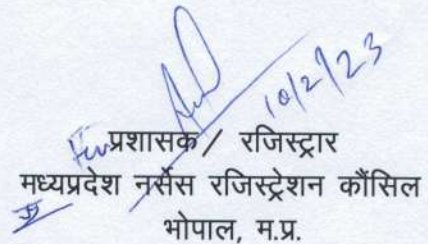 10/2/23
प्रशासक / रजिस्ट्रार
मध्यप्रदेश नर्सेस रजिस्ट्रेशन कौंसिल
भोपाल, म.प्र.